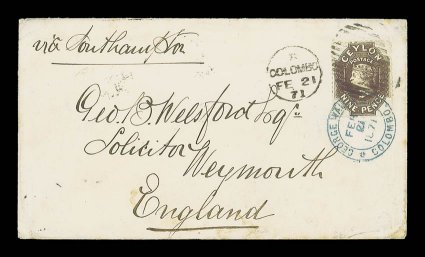 via Southampton
COLOMBO
FE 21
71
CEYLON
POSTAGE
NINE PENCE
GEORGE
COLOMBO
FE
21
1871
Geo. B. Welsford Esqr.
Solicitor
Weymouth
England